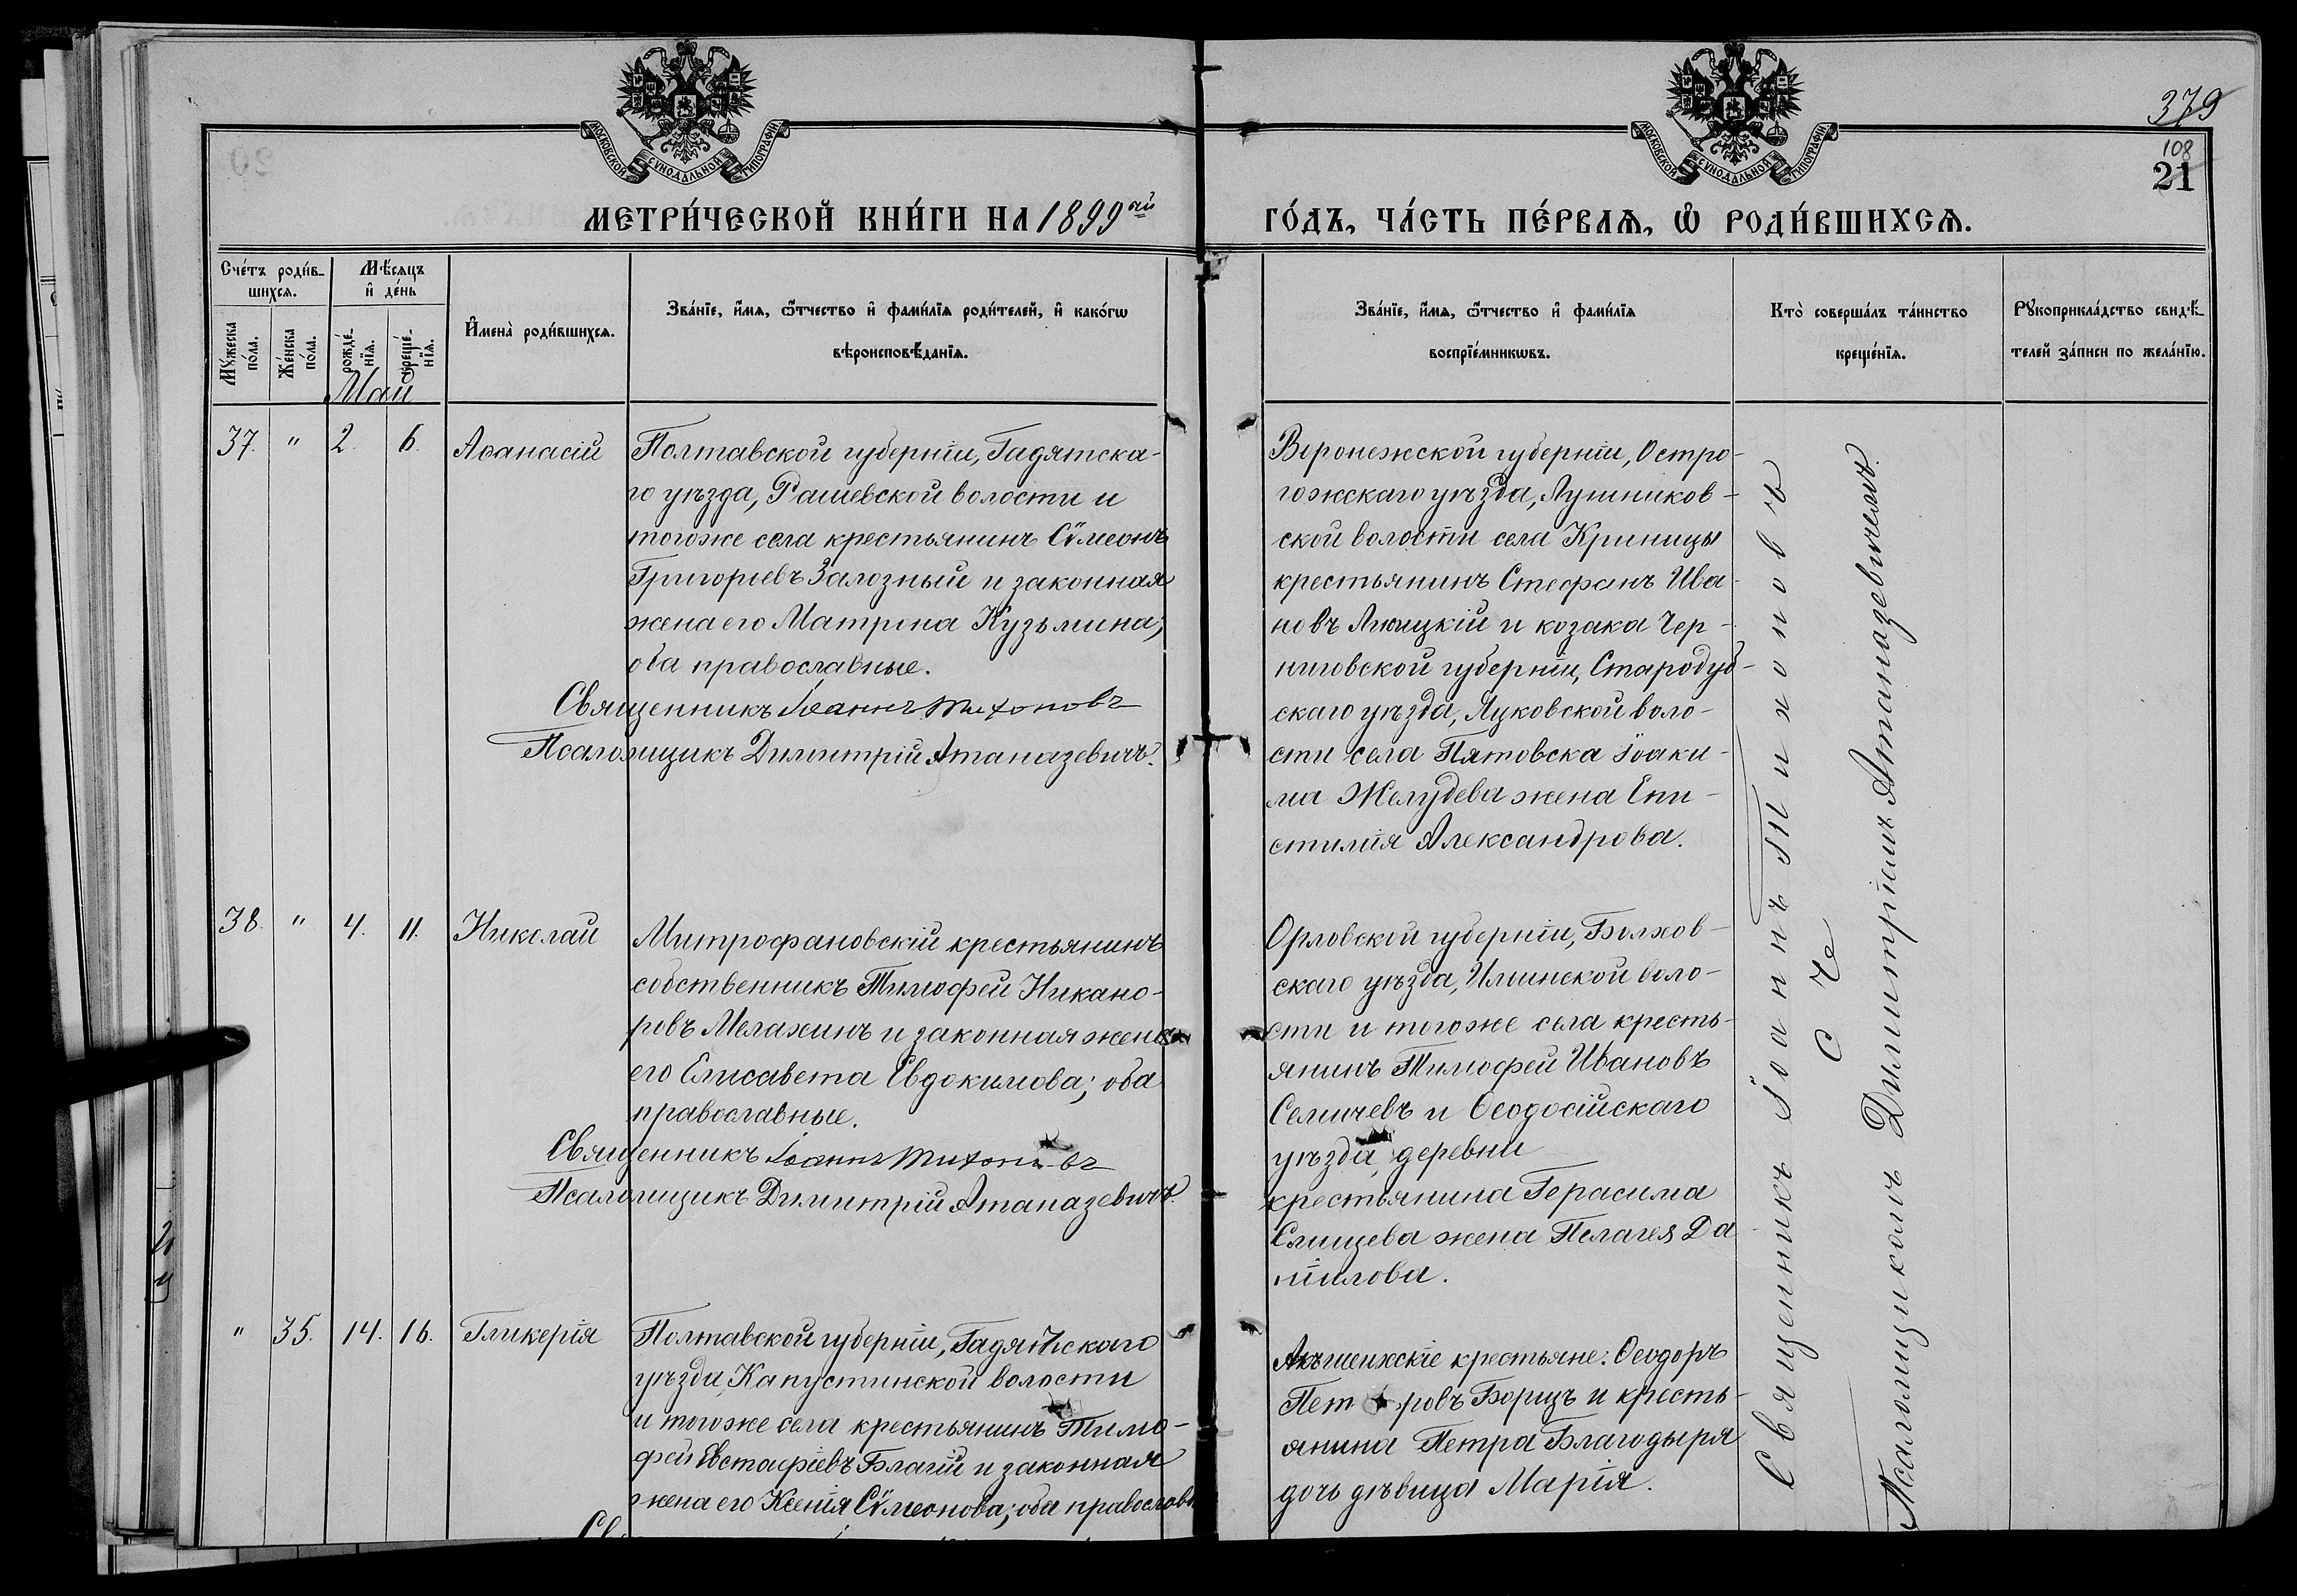 379
108
21
МОСКОВСКОЙ СѴНОДАЛЬНОЙ ТИПОГРАФІИ
МОСКОВСКОЙ СѴНОДАЛЬНОЙ ТИПОГРАФІИ
МЕТРИ́ЧЕСКОЙ КНИ́ГИ НА 1899ый ГО́ДЪ, ЧА́СТЬ ПЕ́РВАЯ, Ѽ РОДИ́ВШИХСЯ.
Сче́тъ роди́в-
шихся.
Мѣ́сяцъ
и҆ де́нь
Мꙋ́жеска
по́ла.
Же́нска
по́ла.
рожде́-
нїя.
креще́-
нїя.
И҆мена̀ роди́вшихся.
Зва́нїе, и҆́мя, ѻ҆́тчество и҆ фами́лїя роди́телей, и҆ како́гѡ
вѣроисповѣ́данїя.
Зва́нїе, и҆́мя, ѻ҆́тчество и҆ фами́лїя
воспрїе́мникѡвъ.
Кто̀ соверша́лъ та́инство
креще́нїя.
Рꙋкоприкла́дство свидѣ́-
телей за́писи по жела́нїю.
Май
37. " 2. 6. Аѳанасій
Полтавской губерніи, Гадятска-
го уѣзда, Рашевской волости и
тогоже села крестьянинъ Сѵмеонъ
Григоріевъ Залозный и законная
жена его Матрона Кузьмина;
оба православные.
Священникъ Іоаннъ Тихоновъ
Псаломщикъ Димитрій Атаназевичъ.
Воронежской губерніи, Остро-
гожскаго уѣзда, Лушников-
ской волости села Криницы
крестьянинъ Стефанъ Ива-
новъ и козака Чер-
ниговской губерніи, Стародуб-
скаго уѣзда, волo-
сти села Пятовска Іоаки-
ма Желудева жена Епи-
стимія Александрова.
38. " 4. 11. Николай
Митрофановскій крестьянинъ
собственникъ Тимофей Никано-
ровъ Мелахинъ и законная жена
его Елисавета Евдокимова; оба
православные.
Священникъ Іоаннъ Тихоновъ
Псаломщикъ Димитрій Атаназевичъ.
Орловской губерніи, Болхов-
скаго уѣзда, Ильинской воло-
сти и тогоже села кресть-
янинъ Тимофей Ивановъ
Семичевъ и Ѳеодосійскаго
уѣзда, деревни
крестьянина Герасима
Слищева жена Пелагея Да-
ніилова.
" 35. 14. 16. Гликерія
Полтавской губерніи, Гадячскаго
уѣзда, Капустинской волости
и тогоже села крестьянинъ Тимо-
фей Евстафіевъ Благій и законная
жена его Ксенія Сѵмеонова; оба православ
Св
крестьяне: Ѳеодоръ
Петровъ Борицъ и кресть-
янина Петра Благодыря
дочь дѣвица Марія.
Священникъ Іоаннъ Тихоновъ
съ
Псаломщикомъ Димитріемъ Атаназевичемъ.